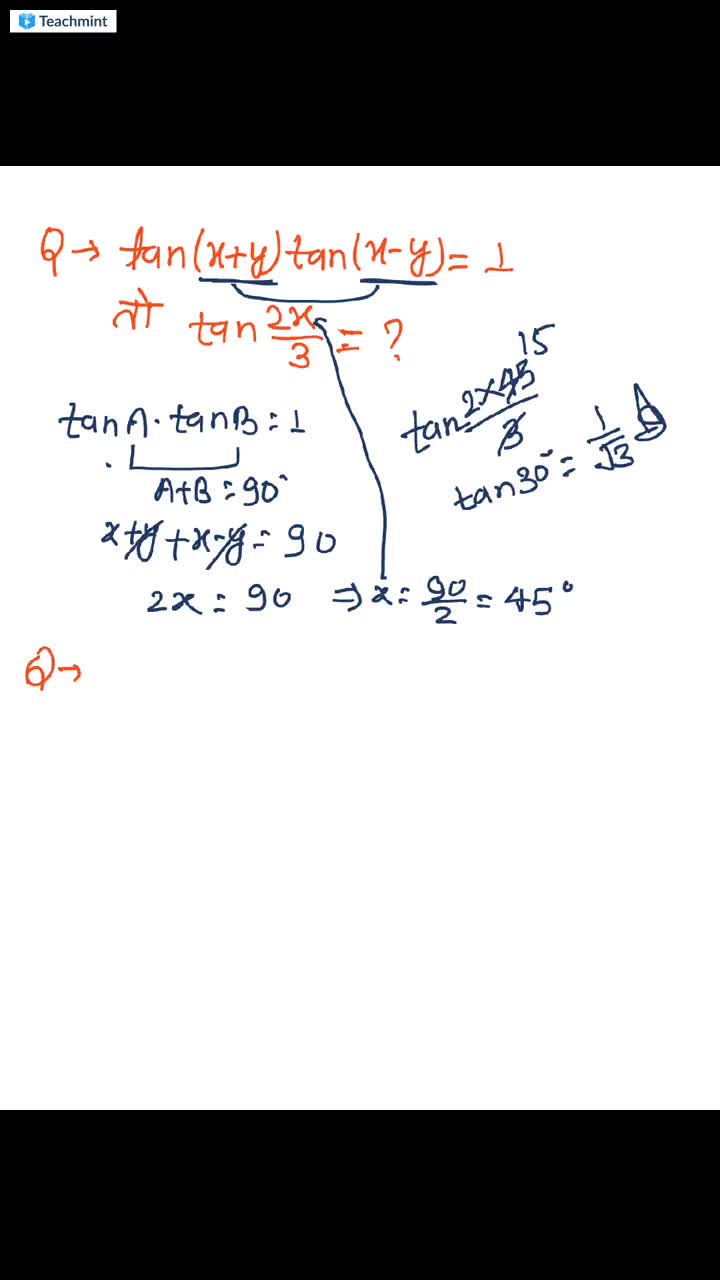 Teachmint
Q→ tan(x+y)tan(x-y)=1
तो tan 2x/3 = ?
tanA·tanB=1
A+B=90°
x+y+x-y=90
2x=90 ⇒x=90/2=45°
15
tan 2×45/3
tan30°=1/√3
Q→